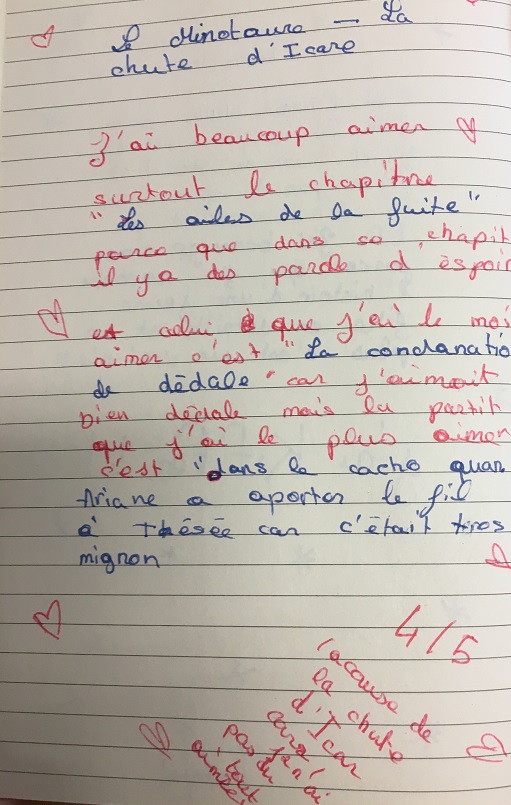 Le Minotaure - La
chute d'Icare
J'ai beaucoup aimer
surtout le chapître
"Les ailes de la fuite"
parce que dans se chapit
il y a des parole d'éspoir
et celui que j'ai le moi
aimer c'est "La condanatio
de dédale" car j'aimait
bien dédale mais la partit
que j'ai le plus aimer
c'est "dans le cache quan
Ariane a aporter le fil
à Thésée car c'était tres
mignon
4/5
(acause de
la chute
d'Icar
car je n'ai
pas du
tout
aimée